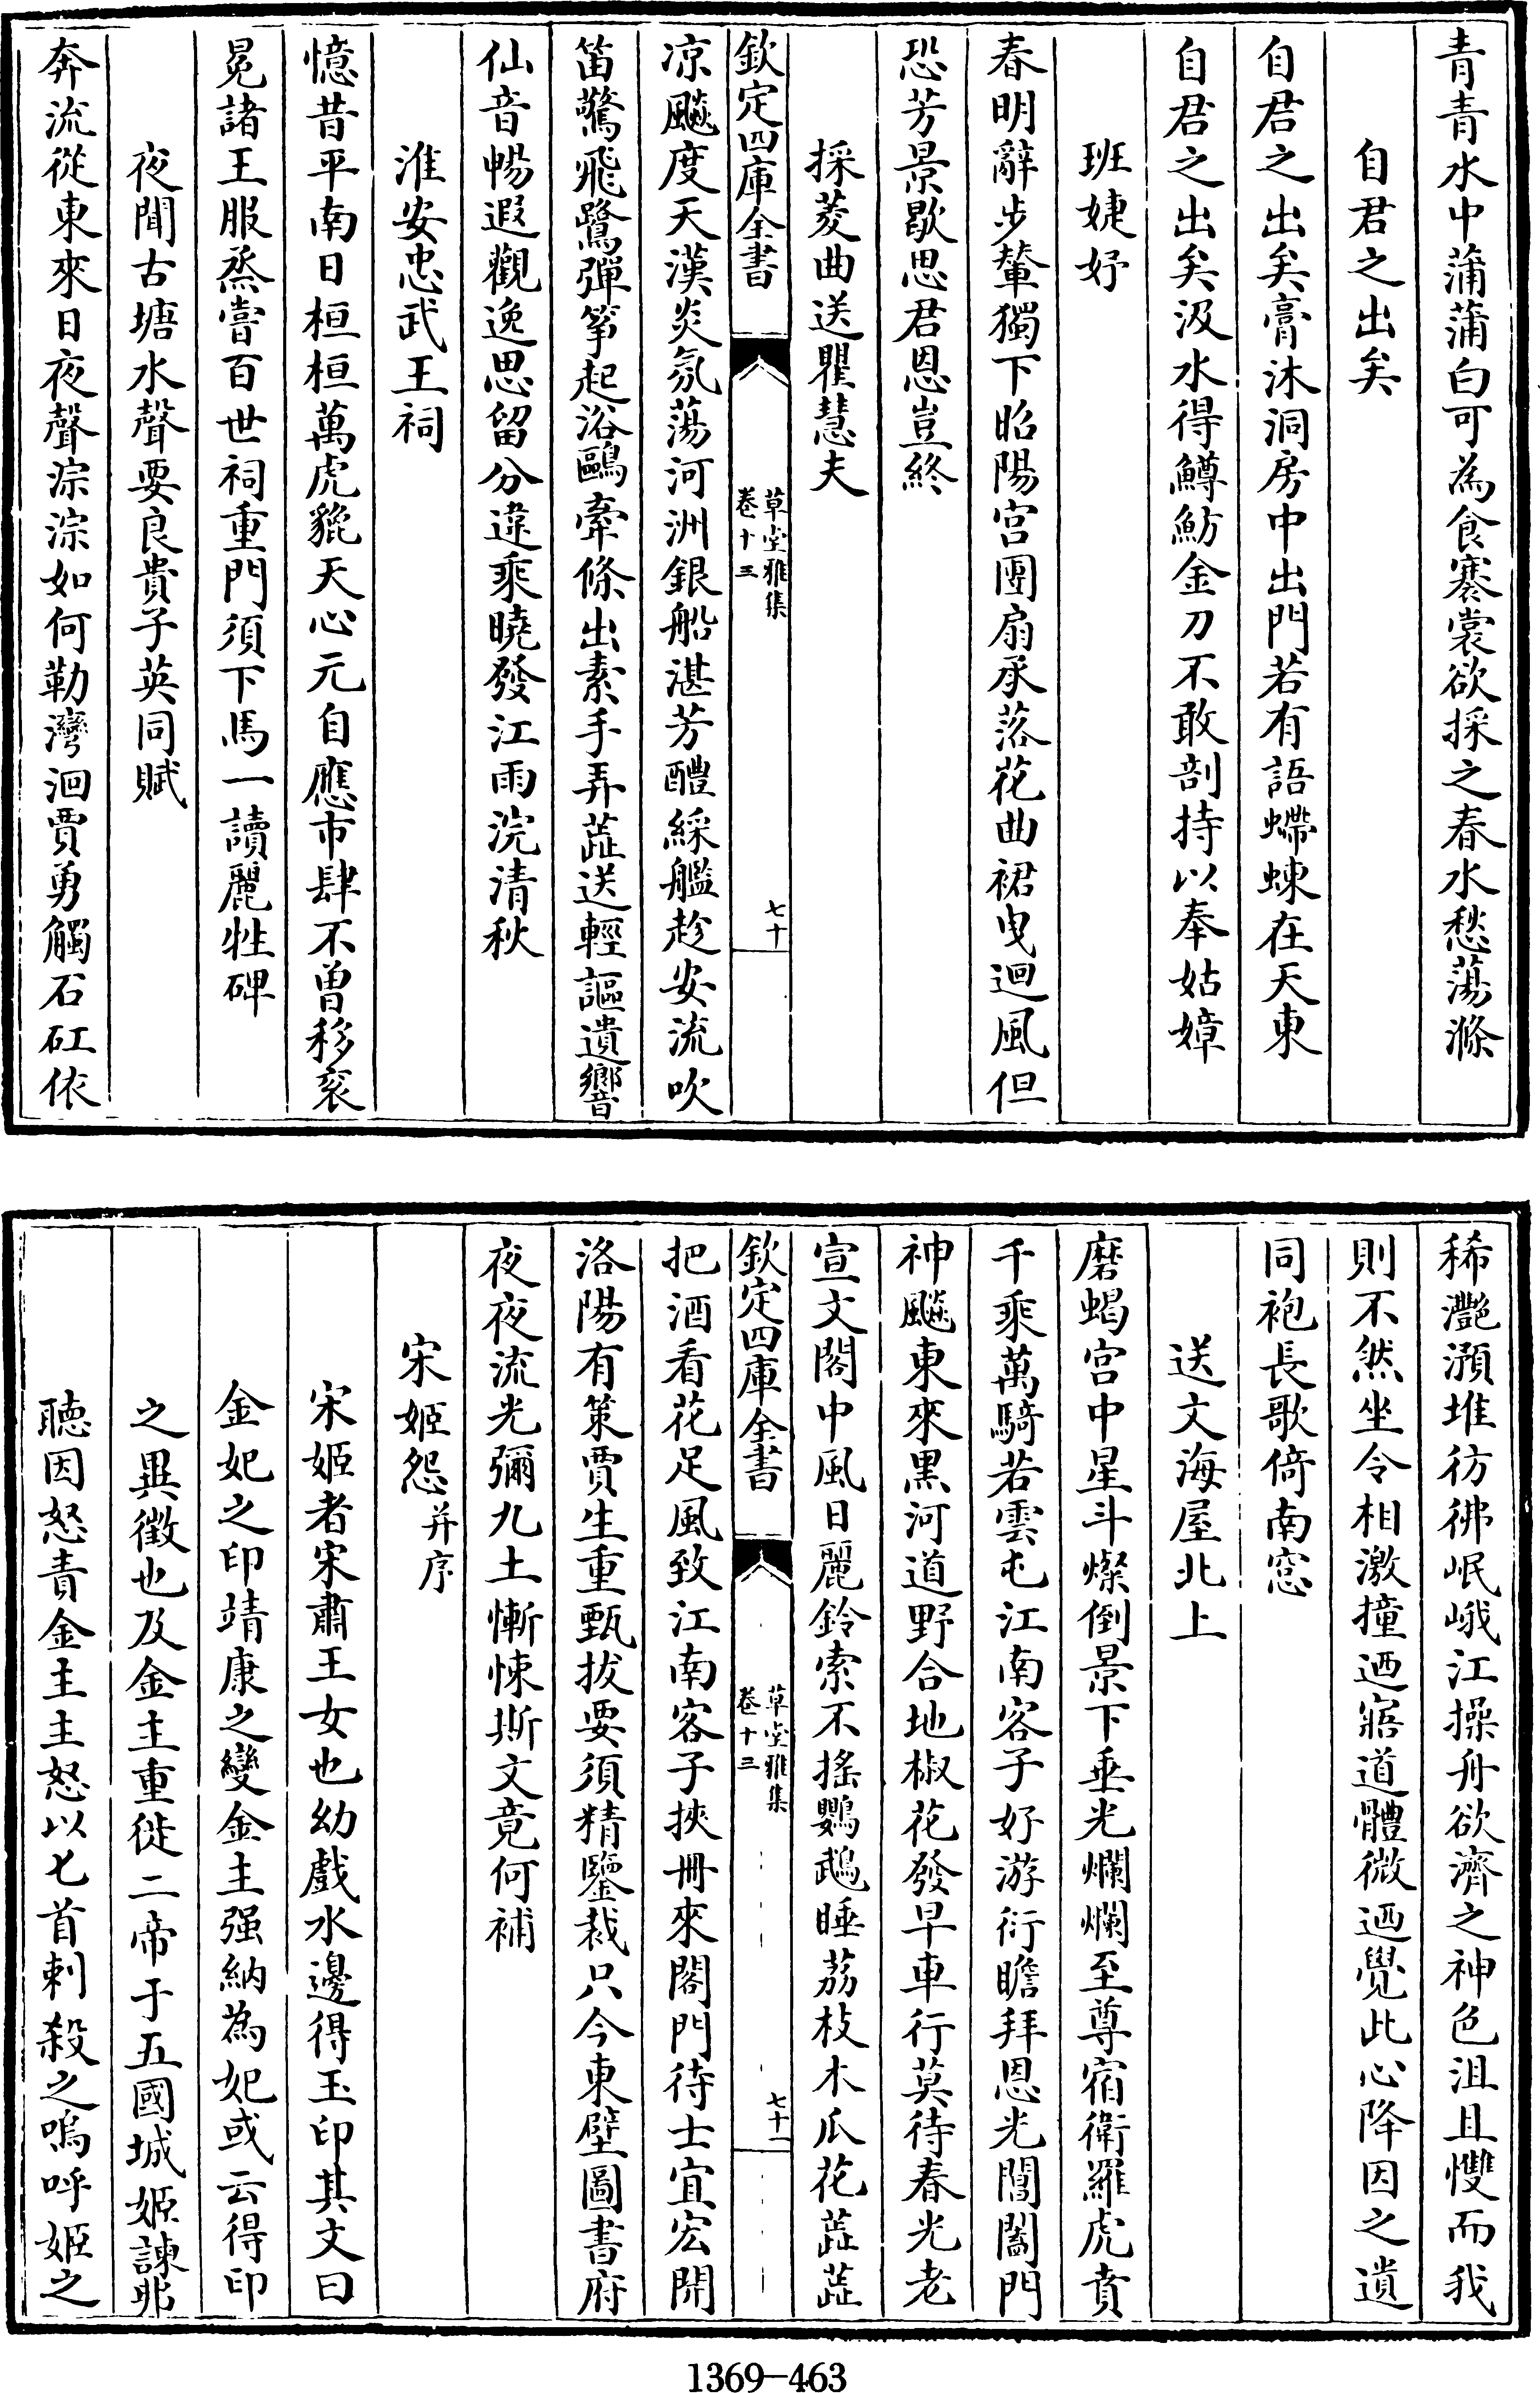 青青水中蒲蒲白可為食褰裳欲採之春水愁蕩滌
自君之出矣
自君之出矣膏沐洞房中出門若有語螮蝀在天東
自君之出矣汲水得鱒魴金刀不敢剖持以奉姑嫜
班婕妤
春明辭步輦獨下昭陽宫團扇承落花曲裙曳迴風但
恐芳景歇思君恩豈終
採菱曲送瞿慧夫
欽定四庫全書
草堂雅集
卷十三
七十
凉飈度天漢炎氛蕩河洲銀船湛芳醴綵艦趁安流吹
笛驚飛鷺彈箏起浴鷗牽條出素手弄蘂送輕謳遺響
仙音暢遐觀逸思留分違乘曉發江雨浣清秋
淮安忠武王祠
憶昔平南日桓桓萬虎貔天心元自應市肆不曾移衮
冕諸王服烝嘗百世祠重門須下馬一讀麗牲碑
夜聞古塘水聲要良貴子英同賦
奔流從東來日夜聲淙淙如何勒灣洄賈勇觸石矼依
稀灔澦堆彷彿岷峨江操舟欲濟之神色沮且慞而我
則不然坐令相激撞迺寤道體微迺覺此心降因之遺
同袍長歌倚南窓
送文海屋北上
磨蝎宫中星斗燦倒景下垂光爛爛至尊宿衛羅虎賁
千乘萬騎若雲屯江南客子好游衍瞻拜恩光閶闔門
神飈東來黑河道野合地椒花發早車行莫待春光老
宣文閣中風日麗鈴索不摇鸚鵡睡荔枝木瓜花蘂蘂
欽定四庫全書
草堂雅集
卷十三
七十一
把酒看花足風致江南客子挾冊來閣門待士宜宏開
洛陽有策賈生重甄拔要須精鑒裁只今東壁圖書府
夜夜流光彌九土慚悚斯文竟何補
宋姬怨并序
宋姬者宋肅王女也幼戲水邊得玉印其文曰
金妃之印靖康之變金主强納為妃或云得印
之異徵也及金主重徙二帝于五國城姬諫弗
聽因怒責金主主怒以匕首刺殺之嗚呼姬之
1369—463